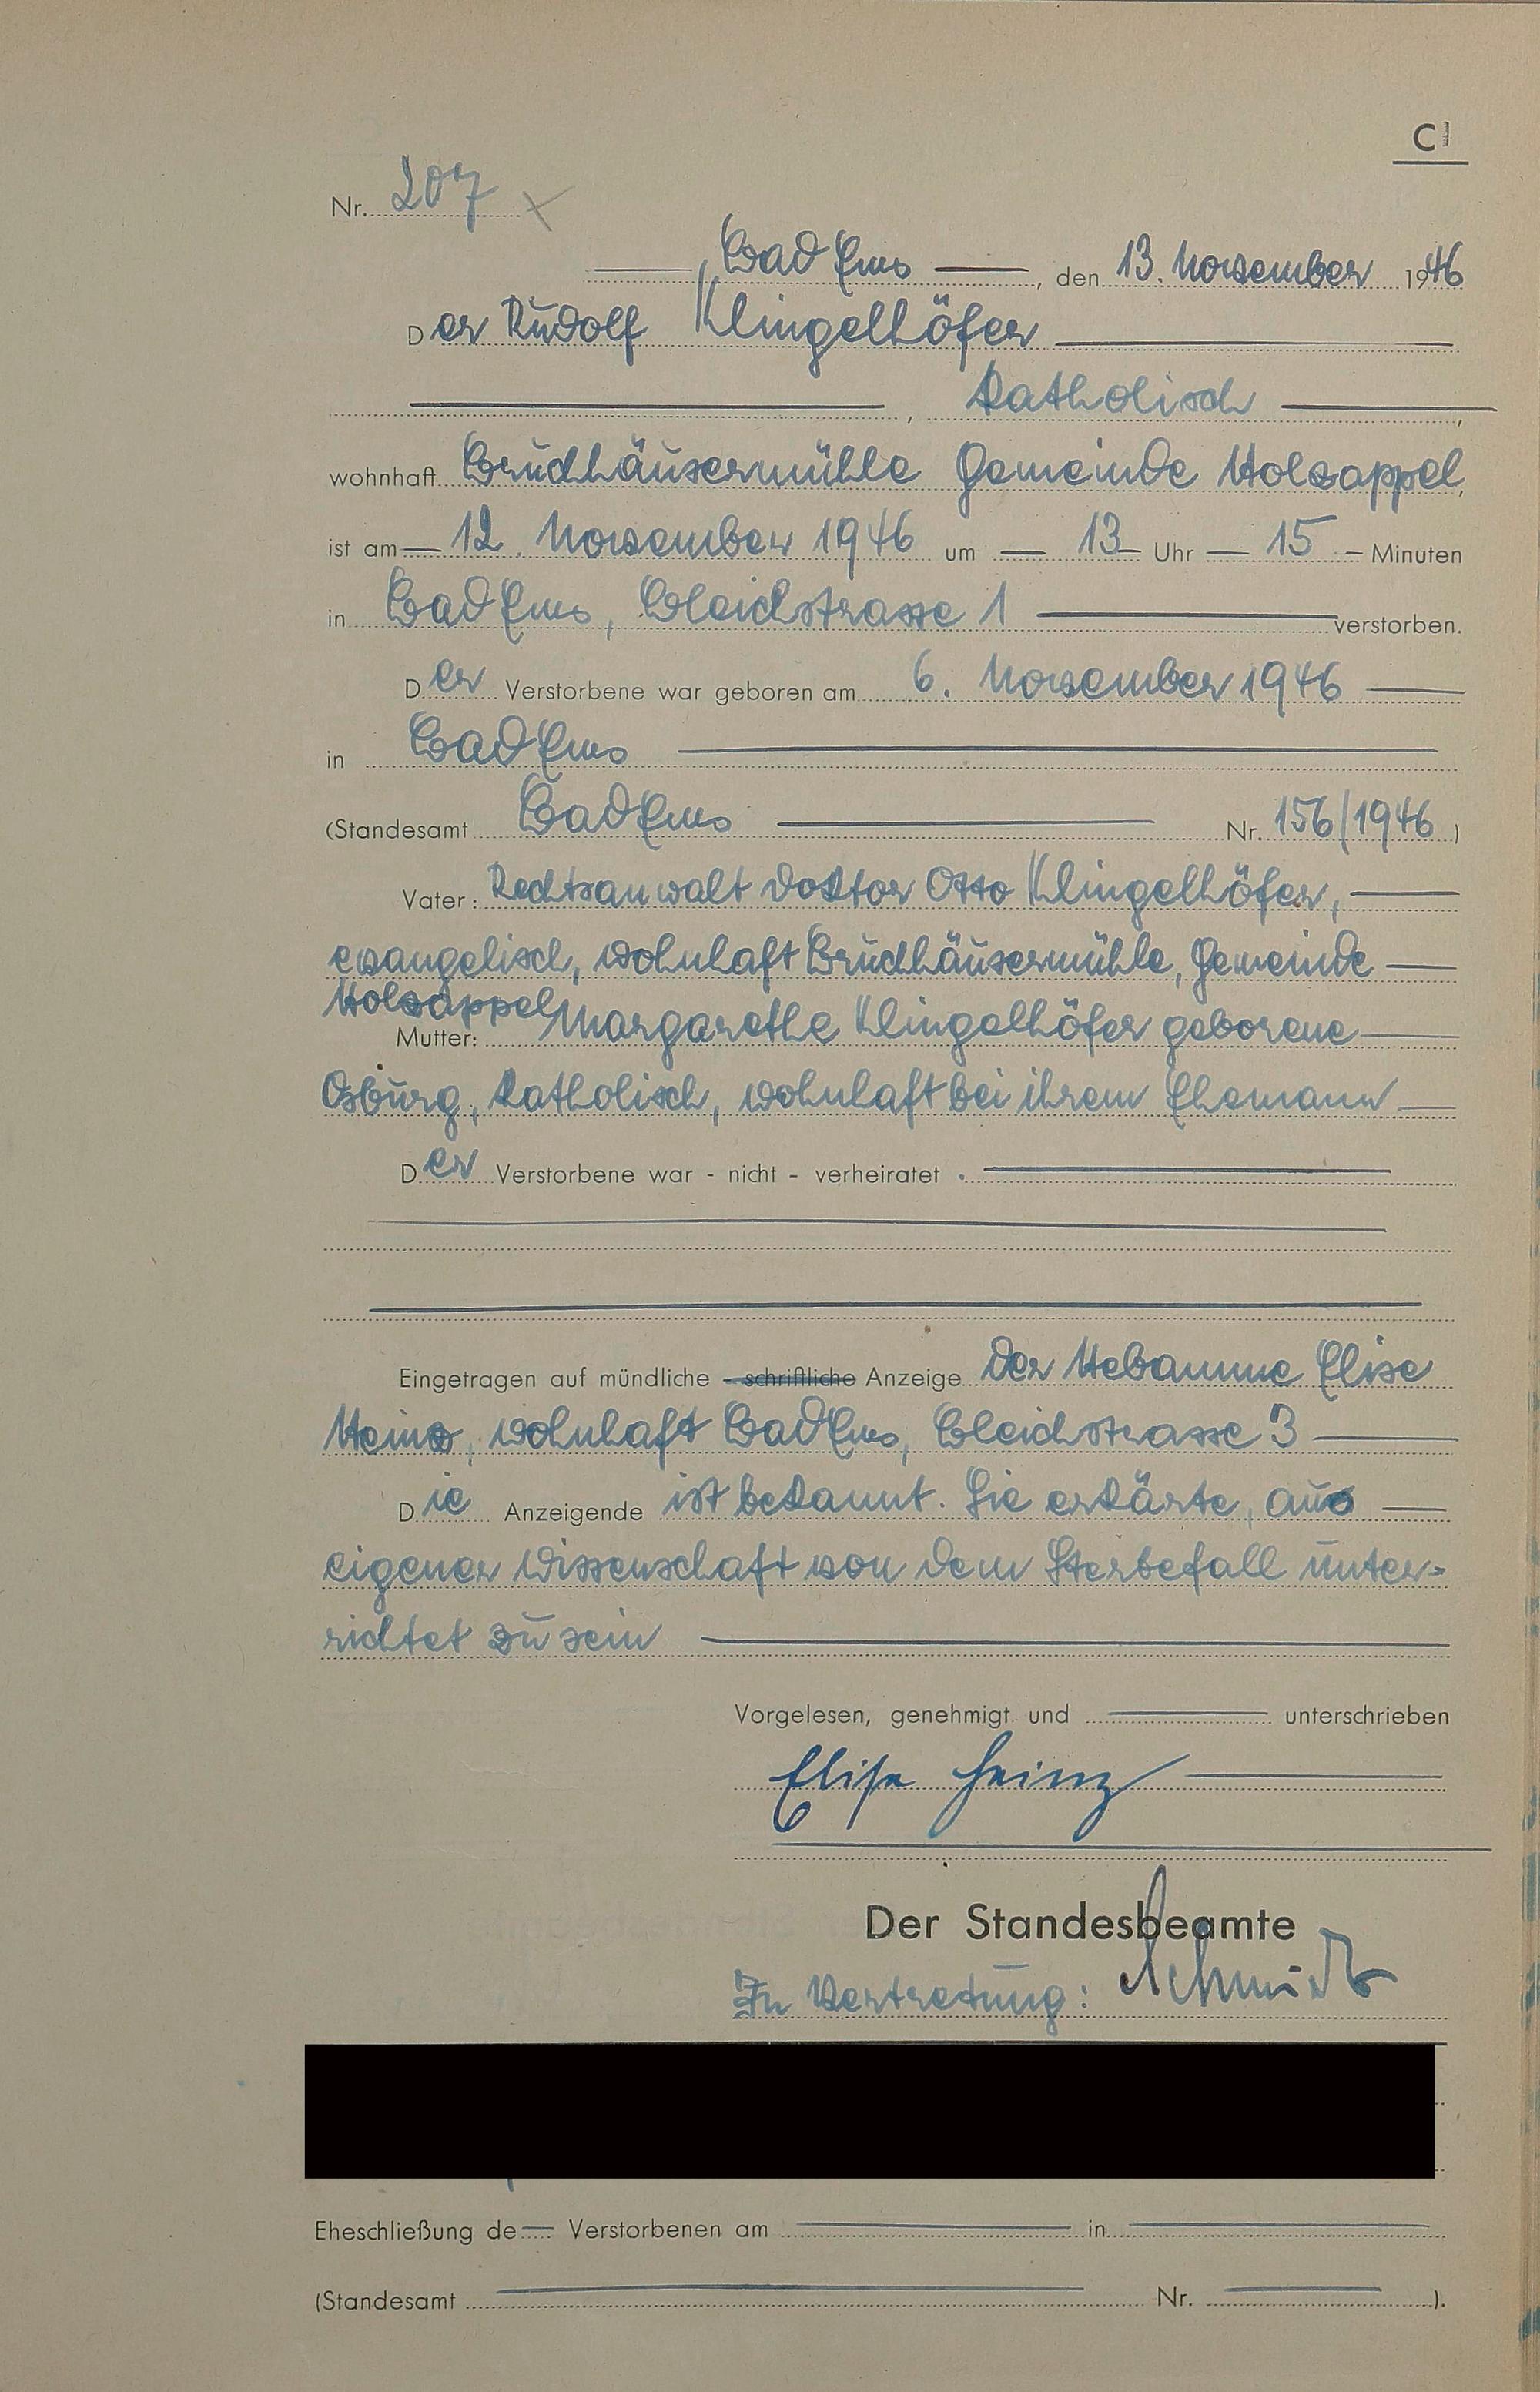 C
Nr. 207
Bad Ems, den 13. November 1946
Der Rudolf Klingelhöfer
, katholisch,
wohnhaft Bruchhäusermühle Gemeinde Holzappel,
ist am 12. November 1946 um 13 Uhr 15 Minuten
in Bad Ems, Bleichstrasse 1 verstorben.
Der Verstorbene war geboren am 6. November 1946
in Bad Ems
(Standesamt Bad Ems Nr. 156/1946)
Vater: Rechtsanwalt Doktor Otto Klingelhöfer,
evangelisch, wohnhaft Bruchhäusermühle, Gemeinde
Holzappel
Mutter: Margarethe Klingelhöfer geborene
Osburg, katholisch, wohnhaft bei ihrem Ehemann
Der Verstorbene war - nicht - verheiratet.
Eingetragen auf mündliche - schriftliche Anzeige der Hebamme Elise
Heinz, wohnhaft Bad Ems, Bleichstrasse 3
Die Anzeigende ist bekannt. Sie erkärte, aus
eigener Wissenschaft von dem Sterbefall unter-
richtet zu sein
Vorgelesen, genehmigt und unterschrieben
Elise Heinz
Der Standesbeamte
In Vertretung: Schmidt
Eheschließung de Verstorbenen am in
(Standesamt Nr. ).